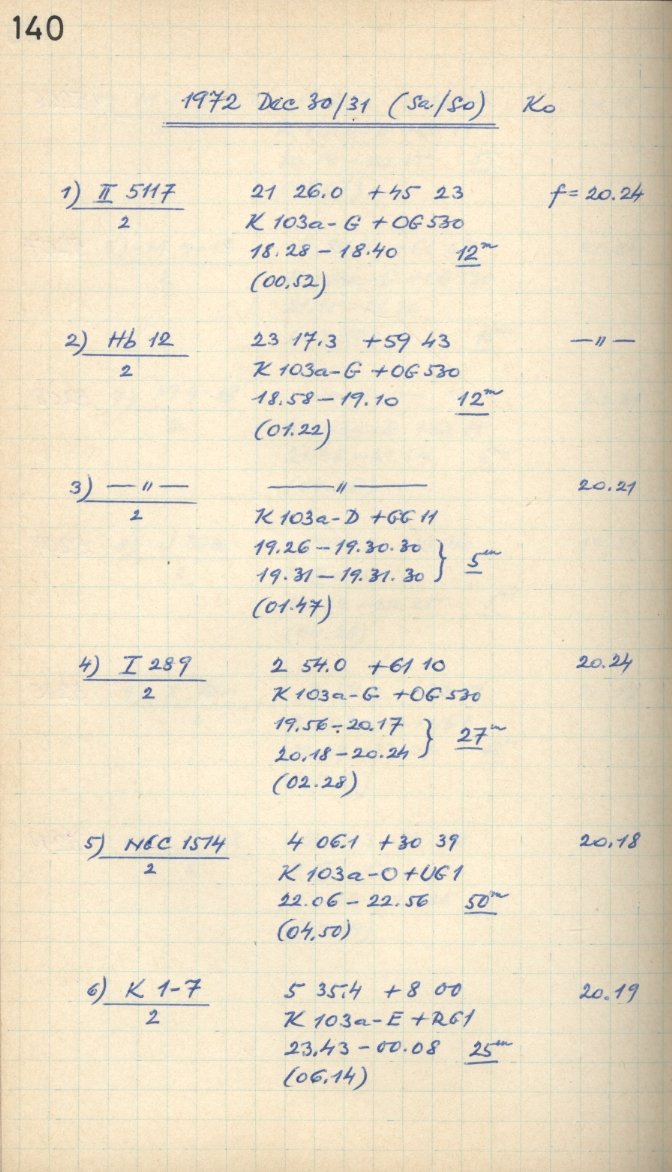 140
1972 Dec 30/31 (Sa/So) Ko
1) II 5117 21 26.0 +45 23 f = 20.24
2 K 103a-G + OG 530
18.28 - 18.40 12m
(00.52)
2) Hb 12 23 17.3 +59 43 —"—
2 K 103a-G + OG 530
18.58 - 19.10 12m
(01.22)
3) —"— —"— 20.21
2 K 103a-D + GG 11
19.26 - 19.30.30 } 5m
19.31 - 19.31.30
(01.47)
4) I 289 2 54.0 +61 10 20.24
2 K 103a-G + OG 530
19.56 - 20.17 } 27m
20.18 - 20.24
(02.28)
5) NGC 1514 4 06.1 +30 39 20.18
2 K 103a-O + UG1
22.06 - 22.56 50m
(04.50)
6) K 1-7 5 35.4 +8 00 20.19
2 K 103a-E + RG1
23.43 - 00.08 25m
(06.14)